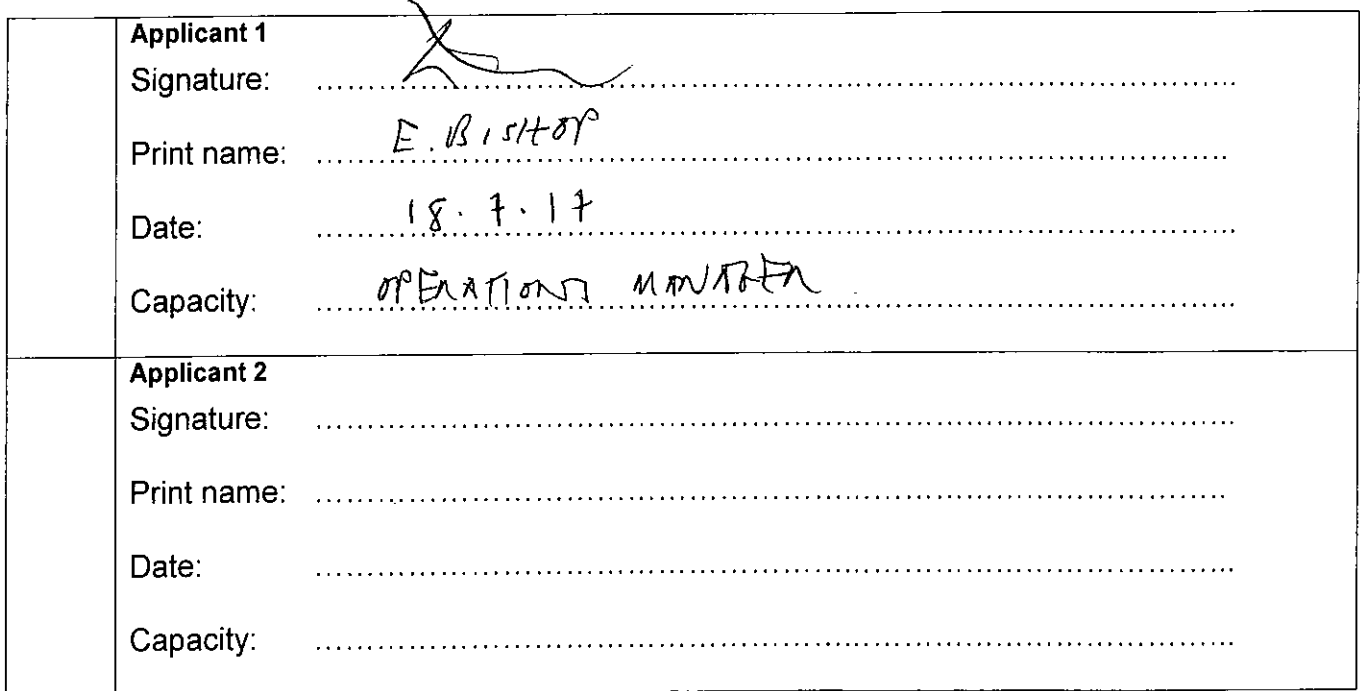 Applicant 1
Signature: ........................................
Print name: E. BISHOP
Date: 18.7.17
Capacity: OPERATIONS MANAGER
Applicant 2
Signature: ........................................
Print name: ........................................
Date: ........................................
Capacity: ........................................